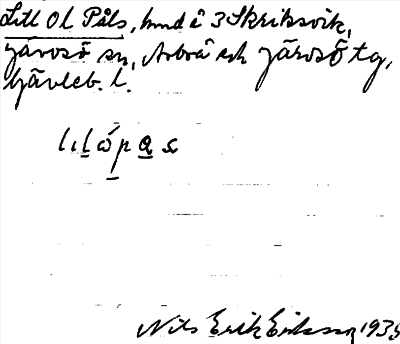 Litl Ol Påls, hmd å 3 Skriksvik,
Järvsö sn, Arbrå och Järvsö tg,
Gävleb. l.
Nils Erik Eriksson 1935